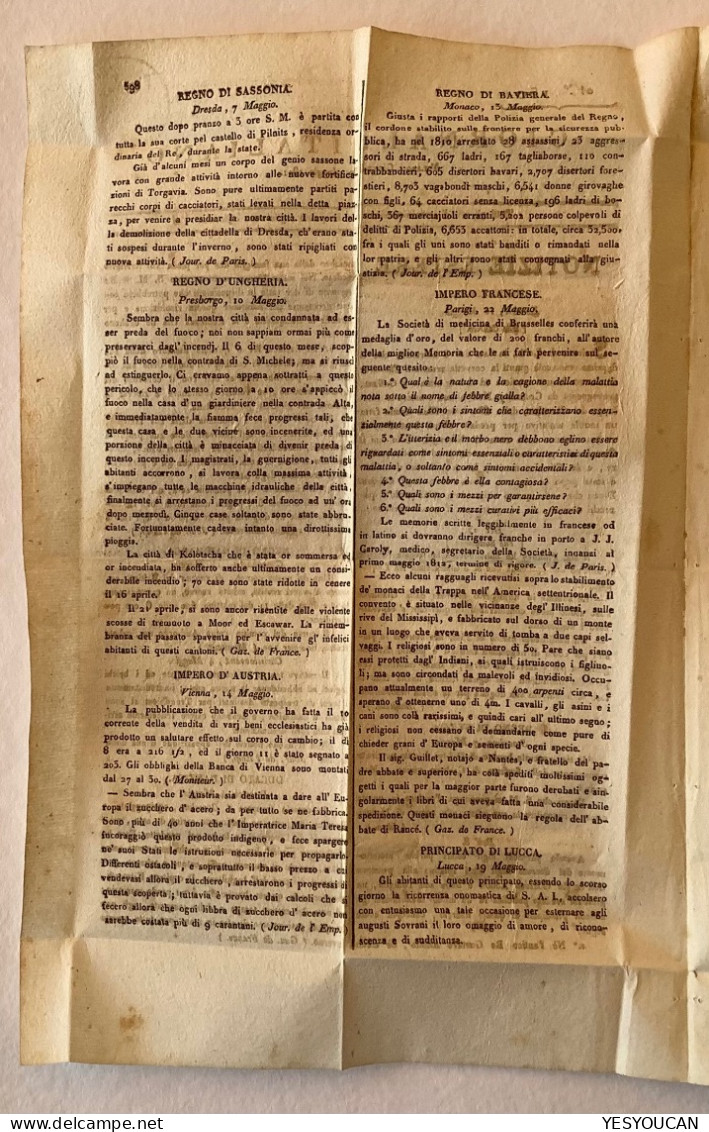 598
REGNO DI SASSONIA.
Dresda, 7 Maggio.
Questo dopo pranzo a 3 ore S. M. è partita con
tutta la sua corte pel castello di Pilnits, residenza or-
dinaria del Re, durante la state.
Già d'alcuni mesi un corpo del genio sassone la-
vora con grande attività intorno alle nuove fortifica-
zioni di Torgavia. Sono pure ultimamente partiti pa-
recchi corpi di cacciatori, stati levati nella detta piaz-
za, per venire a presidiar la nostra città. I lavori del-
la demolizione della cittadella di Dresda, ch'erano sta-
ti sospesi durante l'inverno, sono stati ripigliati con
nuova attività. ( Jour. de Paris. )
REGNO D'UNGHERIA.
Presborgo, 10 Maggio.
Sembra che la nostra città sia condannata ad es-
ser preda del fuoco; noi non sappiam ormai più come
preservarci dagl'incendj. Il 6 di questo mese, scop-
piò il fuoco nella contrada di S. Michele; ma si riuscì
ad estinguerlo. Ci eravamo appena sottratti a questo
pericolo, che lo stesso giorno a 10 ore s'appiccò il
fuoco nella casa d'un giardiniere nella contrada Alta,
e immediatamente la fiamma fece progressi tali, che
questa casa e le due vicine sono incenerite, ed una
porzione della città è minacciata di divenir preda di
questo incendio. I magistrati, la guernigione, tutti gli
abitanti accorrono, si lavora colla massima attività,
s'impiegano tutte le macchine idrauliche della città,
finalmente si arrestano i progressi del fuoco ad un' ora
dopo mezzodì. Cinque case soltanto sono state abbru-
ciate. Fortunatamente cadeva intanto una dirottissima
pioggia.
La città di Kolotscha che è stata or sommersa ed
or incendiata, ha sofferto anche ultimamente un consi-
derabile incendio; 70 case sono state ridotte in cenere
il 26 aprile.
Il 21 aprile, si sono ancor risentite delle violente
scosse di tremuoto a Moor ed Escawar. La rimem-
branza del passato spaventa per l'avvenire gl' infelici
abitanti di questi cantoni. ( Gaz. de France. )
IMPERO D' AUSTRIA.
Vienna, 14 Maggio.
La pubblicazione che il governo ha fatta il 10
corrente della vendita di varj beni ecclesiastici ha già
prodotto un salutare effetto sul corso di cambio; il dì
8 era a 216 1/2, ed il giorno 11 è stato segnato a
203. Gli obblighi della Banca di Vienna sono montati
dal 27 al 30. ( Moniteur. )
— Sembra che l' Austria sia destinata a dare all' Eu-
ropa il zucchero d' acero; da per tutto se ne fabbrica.
Sono più di 40 anni che l'Imperatrice Maria Teresa
incoraggiò questo prodotto indigeno, e fece spargere
ne' suoi Stati le istruzioni necessarie per propagarlo.
Differenti ostacoli, e soprattutto il basso prezzo a cui
vendevasi allora il zucchero, arrestarono i progressi di
questa scoperta; tuttavia è provato dai calcoli che si
fecero allora che ogni libbra di zucchero d' acero non
sarebbe costata più di 9 carantani. ( Jour. de l' Emp. )
REGNO DI BAVIERA.
Monaco, 13 Maggio.
Giusta i rapporti della Polizia generale del Regno,
il cordone stabilito sulle frontiere per la sicurezza pub-
blica, ha nel 1810 arrestato 28 assassini, 23 aggres-
sori di strada, 667 ladri, 167 tagliaborse, 110 con-
trabbandieri, 685 disertori bavari, 2,707 disertori fore-
stieri, 8,703 vagabondi maschi, 6,541 donne girovaghe
con figli, 64 cacciatori senza licenza, 196 ladri di bo-
schi, 367 merciajuoli erranti, 5,202 persone colpevoli di
delitti di Polizia, 6,653 accattoni: in totale, circa 32,500,
fra i quali gli uni sono stati banditi o rimandati nella
lor patria, e gli altri sono stati consegnati alla giu-
stizia. ( Jour. de l'Emp. )
IMPERO FRANCESE.
Parigi, 22 Maggio.
La Società di medicina di Brusselles conferirà una
medaglia d'oro, del valore di 200 franchi, all'autore
della miglior Memoria che le si farà pervenire sul se-
guente quesito:
1.° Qual è la natura e la cagione della malattia
nota sotto il nome di febbre gialla?
2.° Quali sono i sintomi che caratterizzano essen-
zialmente questa febbre?
3.° L'itterizia e il morbo nero debbono eglino essere
riguardati come sintomi essenziali o caratteristici di questa
malattia, o soltanto come sintomi accidentali?
4.° Questa febbre è ella contagiosa?
5.° Quali sono i mezzi per garantirsene?
6.° Quali sono i mezzi curativi più efficaci?
Le memorie scritte leggibilmente in francese od
in latino si dovranno dirigere franche in porto a J. J.
Caroly, medico, segretario della Società, innanzi al
primo maggio 1812, termine di rigore. ( J. de Paris. )
— Ecco alcuni ragguagli ricevutisi sopra lo stabilimento
de' monaci della Trappa nell' America settentrionale. Il
convento è situato nelle vicinanze degl' Illinesi, sulle
rive del Mississipì, e fabbricato sul dorso di un monte
in un luogo che aveva servito di tomba a due capi sel-
vaggi. I religiosi sono in numero di 50. Pare che siano
assai protetti dagl' Indiani, ai quali istruiscono i figliuo-
li; ma sono circondati da malevoli ed invidiosi. Occu-
pano attualmente un terreno di 400 arpenti circa, e
sperano d' ottenerne uno di 4m. I cavalli, gli asini e i
cani sono colà rarissimi, e quindi cari all' ultimo segno;
i religiosi non cessano di domandarne come pure di
chieder grani d' Europa e sementi d' ogni specie.
Il sig. Guillet, notajo a Nantes, e fratello del pa-
dre abbate e superiore, ha colà spediti moltissimi og-
getti i quali per la maggior parte furono derubati e sin-
golarmente i libri di cui aveva fatta una considerabile
spedizione. Questi monaci sieguono la regola dell' ab-
bate di Rancé. ( Gaz. de France. )
PRINCIPATO DI LUCCA.
Lucca, 19 Maggio.
Gli abitanti di questo principato, essendo lo scorso
giorno la ricorrenza onomastica di S. A. I., accolsero
con entusiasmo una tale occasione per esternare agli
augusti Sovrani il loro omaggio di amore, di ricono-
scenza e di sudditanza.
YESYOUCAN